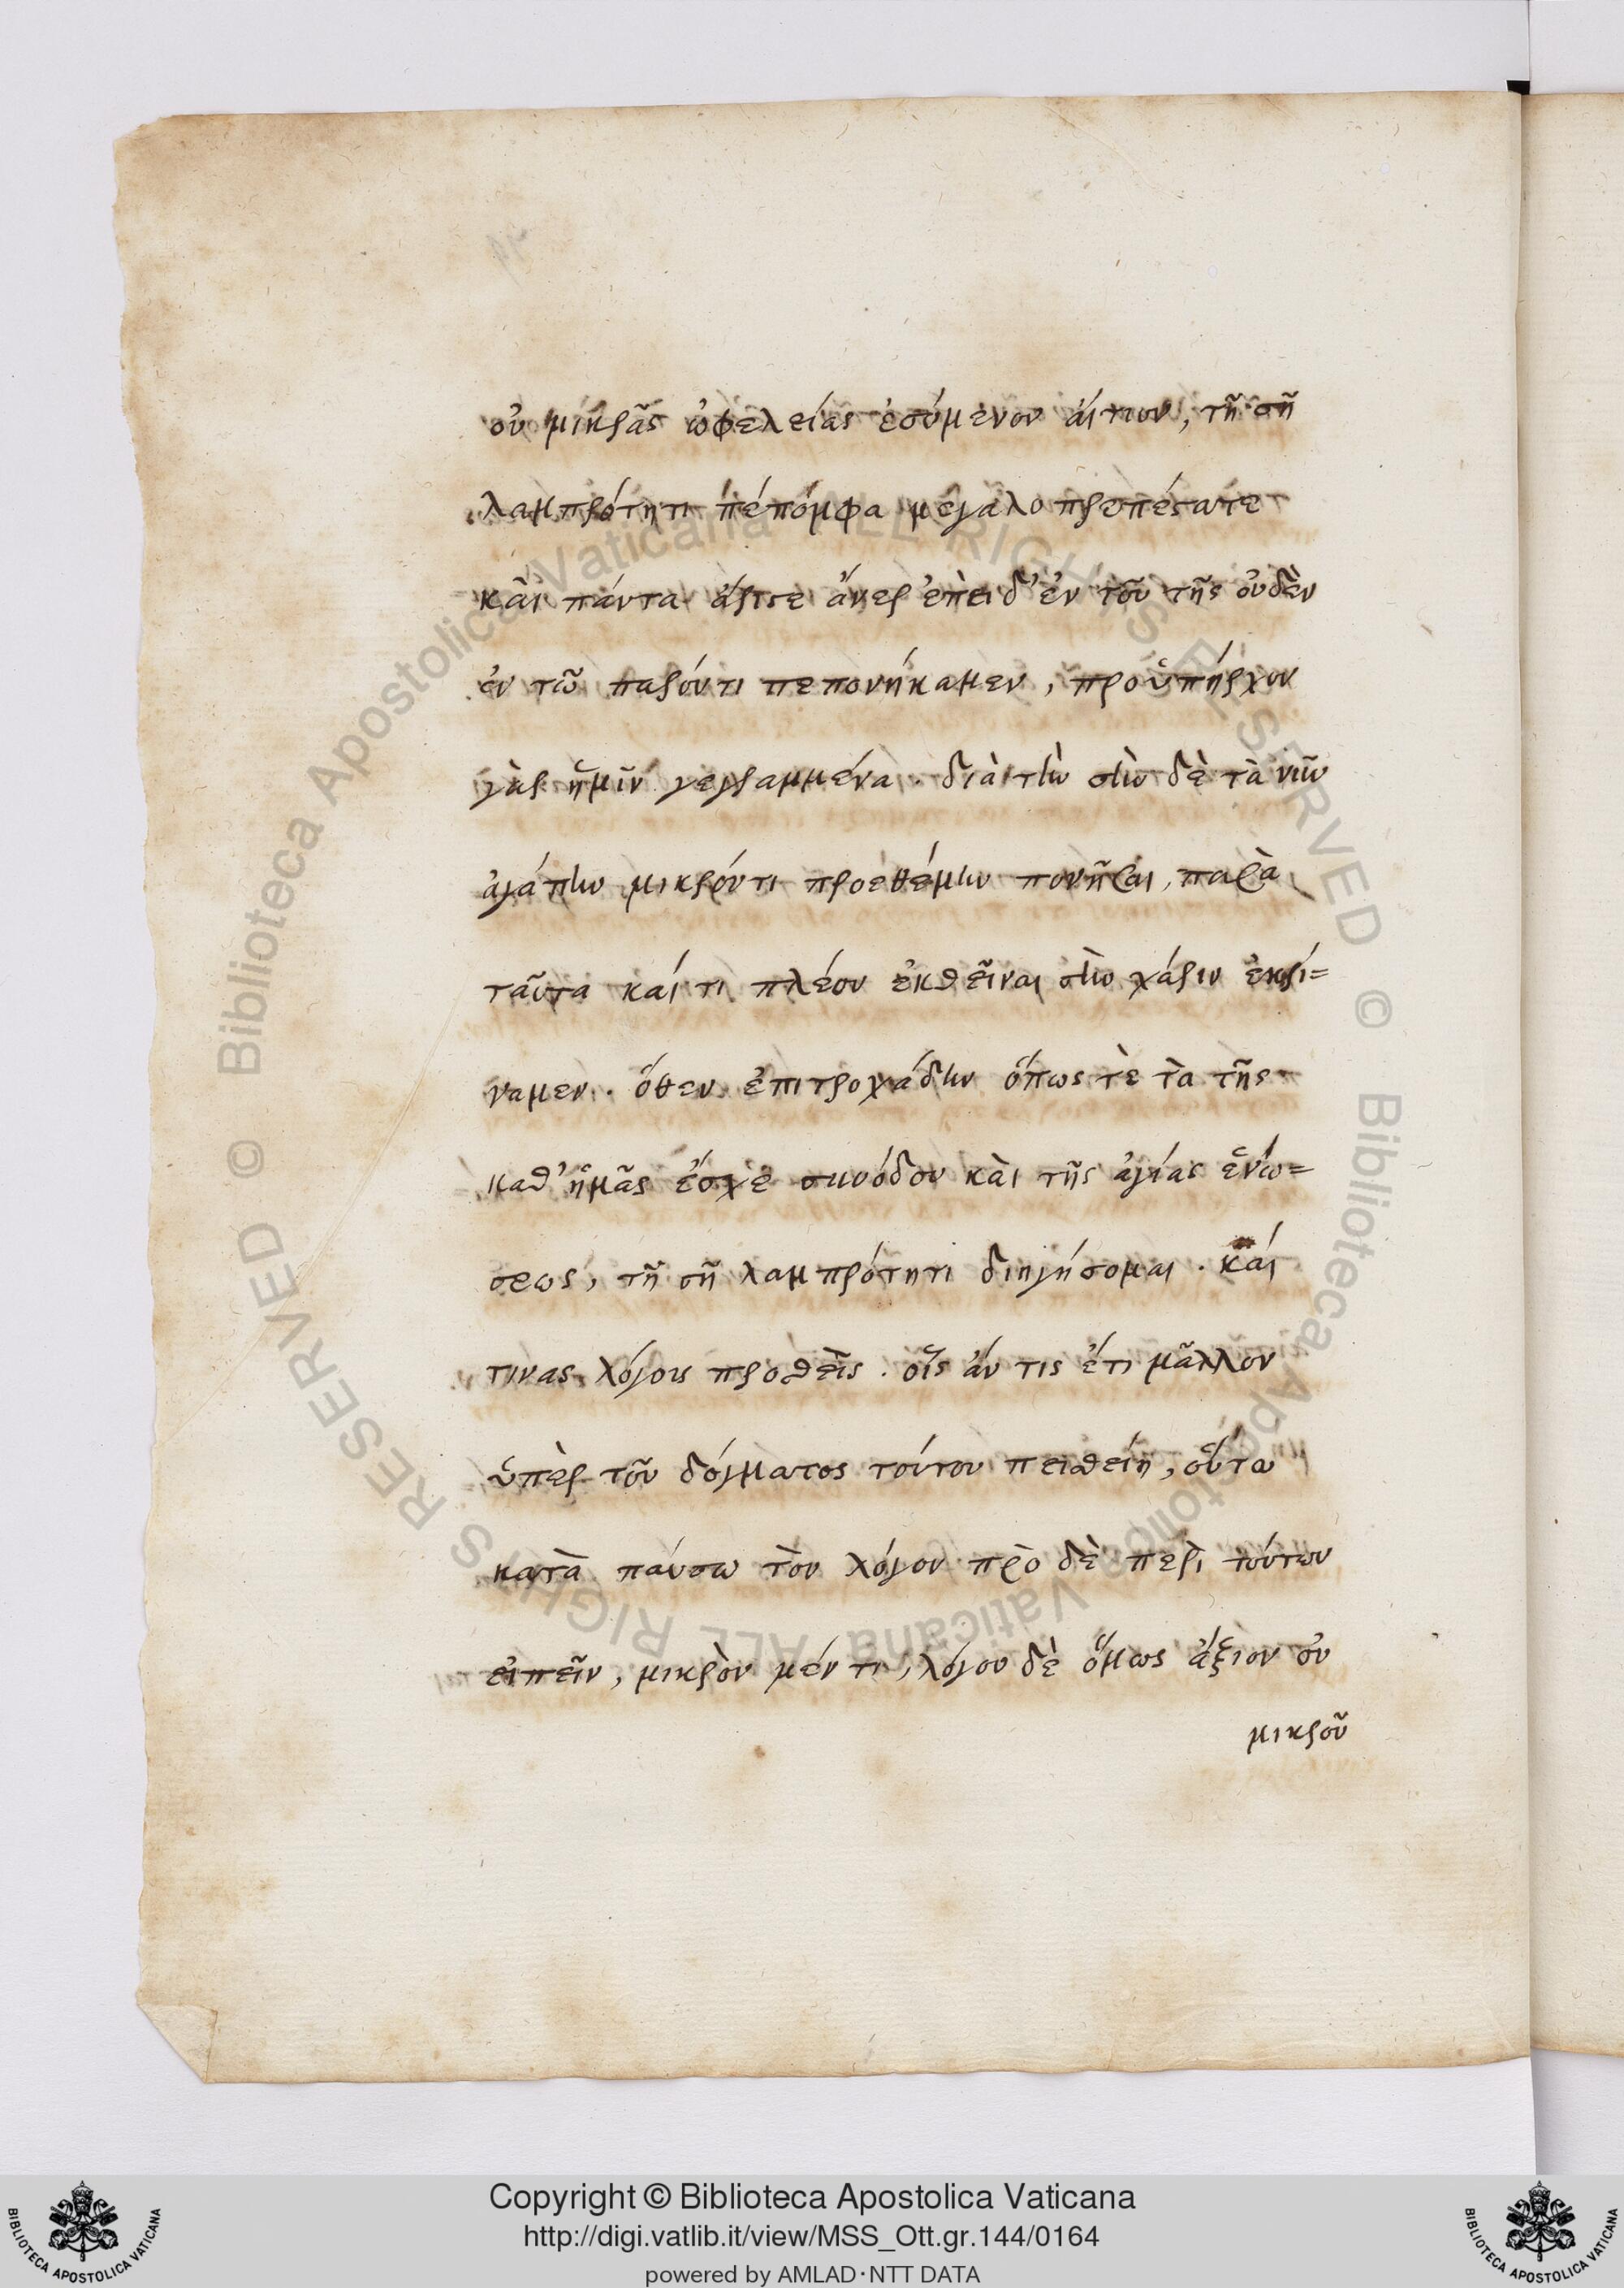 οὐ μικρᾶς ὠφελείας ἐσόμενον ἄιτιον, τῆ σῆ
λαμπρότητι πέπομφα μεγαλοπρεπέστατε
κὰι πάντα ἄριστε ἄνερ ἐπεὶ δ' ἐν τοῦ της οὐδὲν
ἐν τῶ παρόντι πεπονήκαμεν, προϋπήρχον
γὰρ ἡμῖν γεγραμμένα. διὰ τὴν σὴν δὲ τὰ νῦν
ἀγάπην μικρόν τι προεθέμην πονῆσαι, παρὰ
ταῦτα καί τι πλέον ἐκθεῖναι σὴν χάριν ἐκρί=
ναμεν. ὅθεν ἐπιτροχάδην ὅπως τὲ τὰ τῆς
καθ' ἡμᾶς ἔσχε συνόδου κὰι τῆς ἁγίας ἑνώ=
σεως, τῆ σῆ λαμπρότητι διηγήσομαι. καί
τινας λόγους προθεὶς. οἷς ἄν τις ἔτι μᾶλλον
ὑπὲρ τοῦ δόγματος τούτου πειθείη, οὕτω
κατὰ παύσω τὸν λόγον πρὸ δὲ περὶ τούτων
εἰπεῖν, μικρὸν μέν τι, λόγου δὲ ὅμως ἄξιον οὐ
μικροῦ
Copyright © Biblioteca Apostolica Vaticana
http://digi.vatlib.it/view/MSS_Ott.gr.144/0164
powered by AMLAD·NTT DATA
BIBLIOTECA APOSTOLICA VATICANA
BIBLIOTECA APOSTOLICA VATICANA
© Biblioteca Apostolica Vaticana ALL RIGHTS RESERVED © Biblioteca Apostolica Vaticana ALL RIGHTS RESERVED